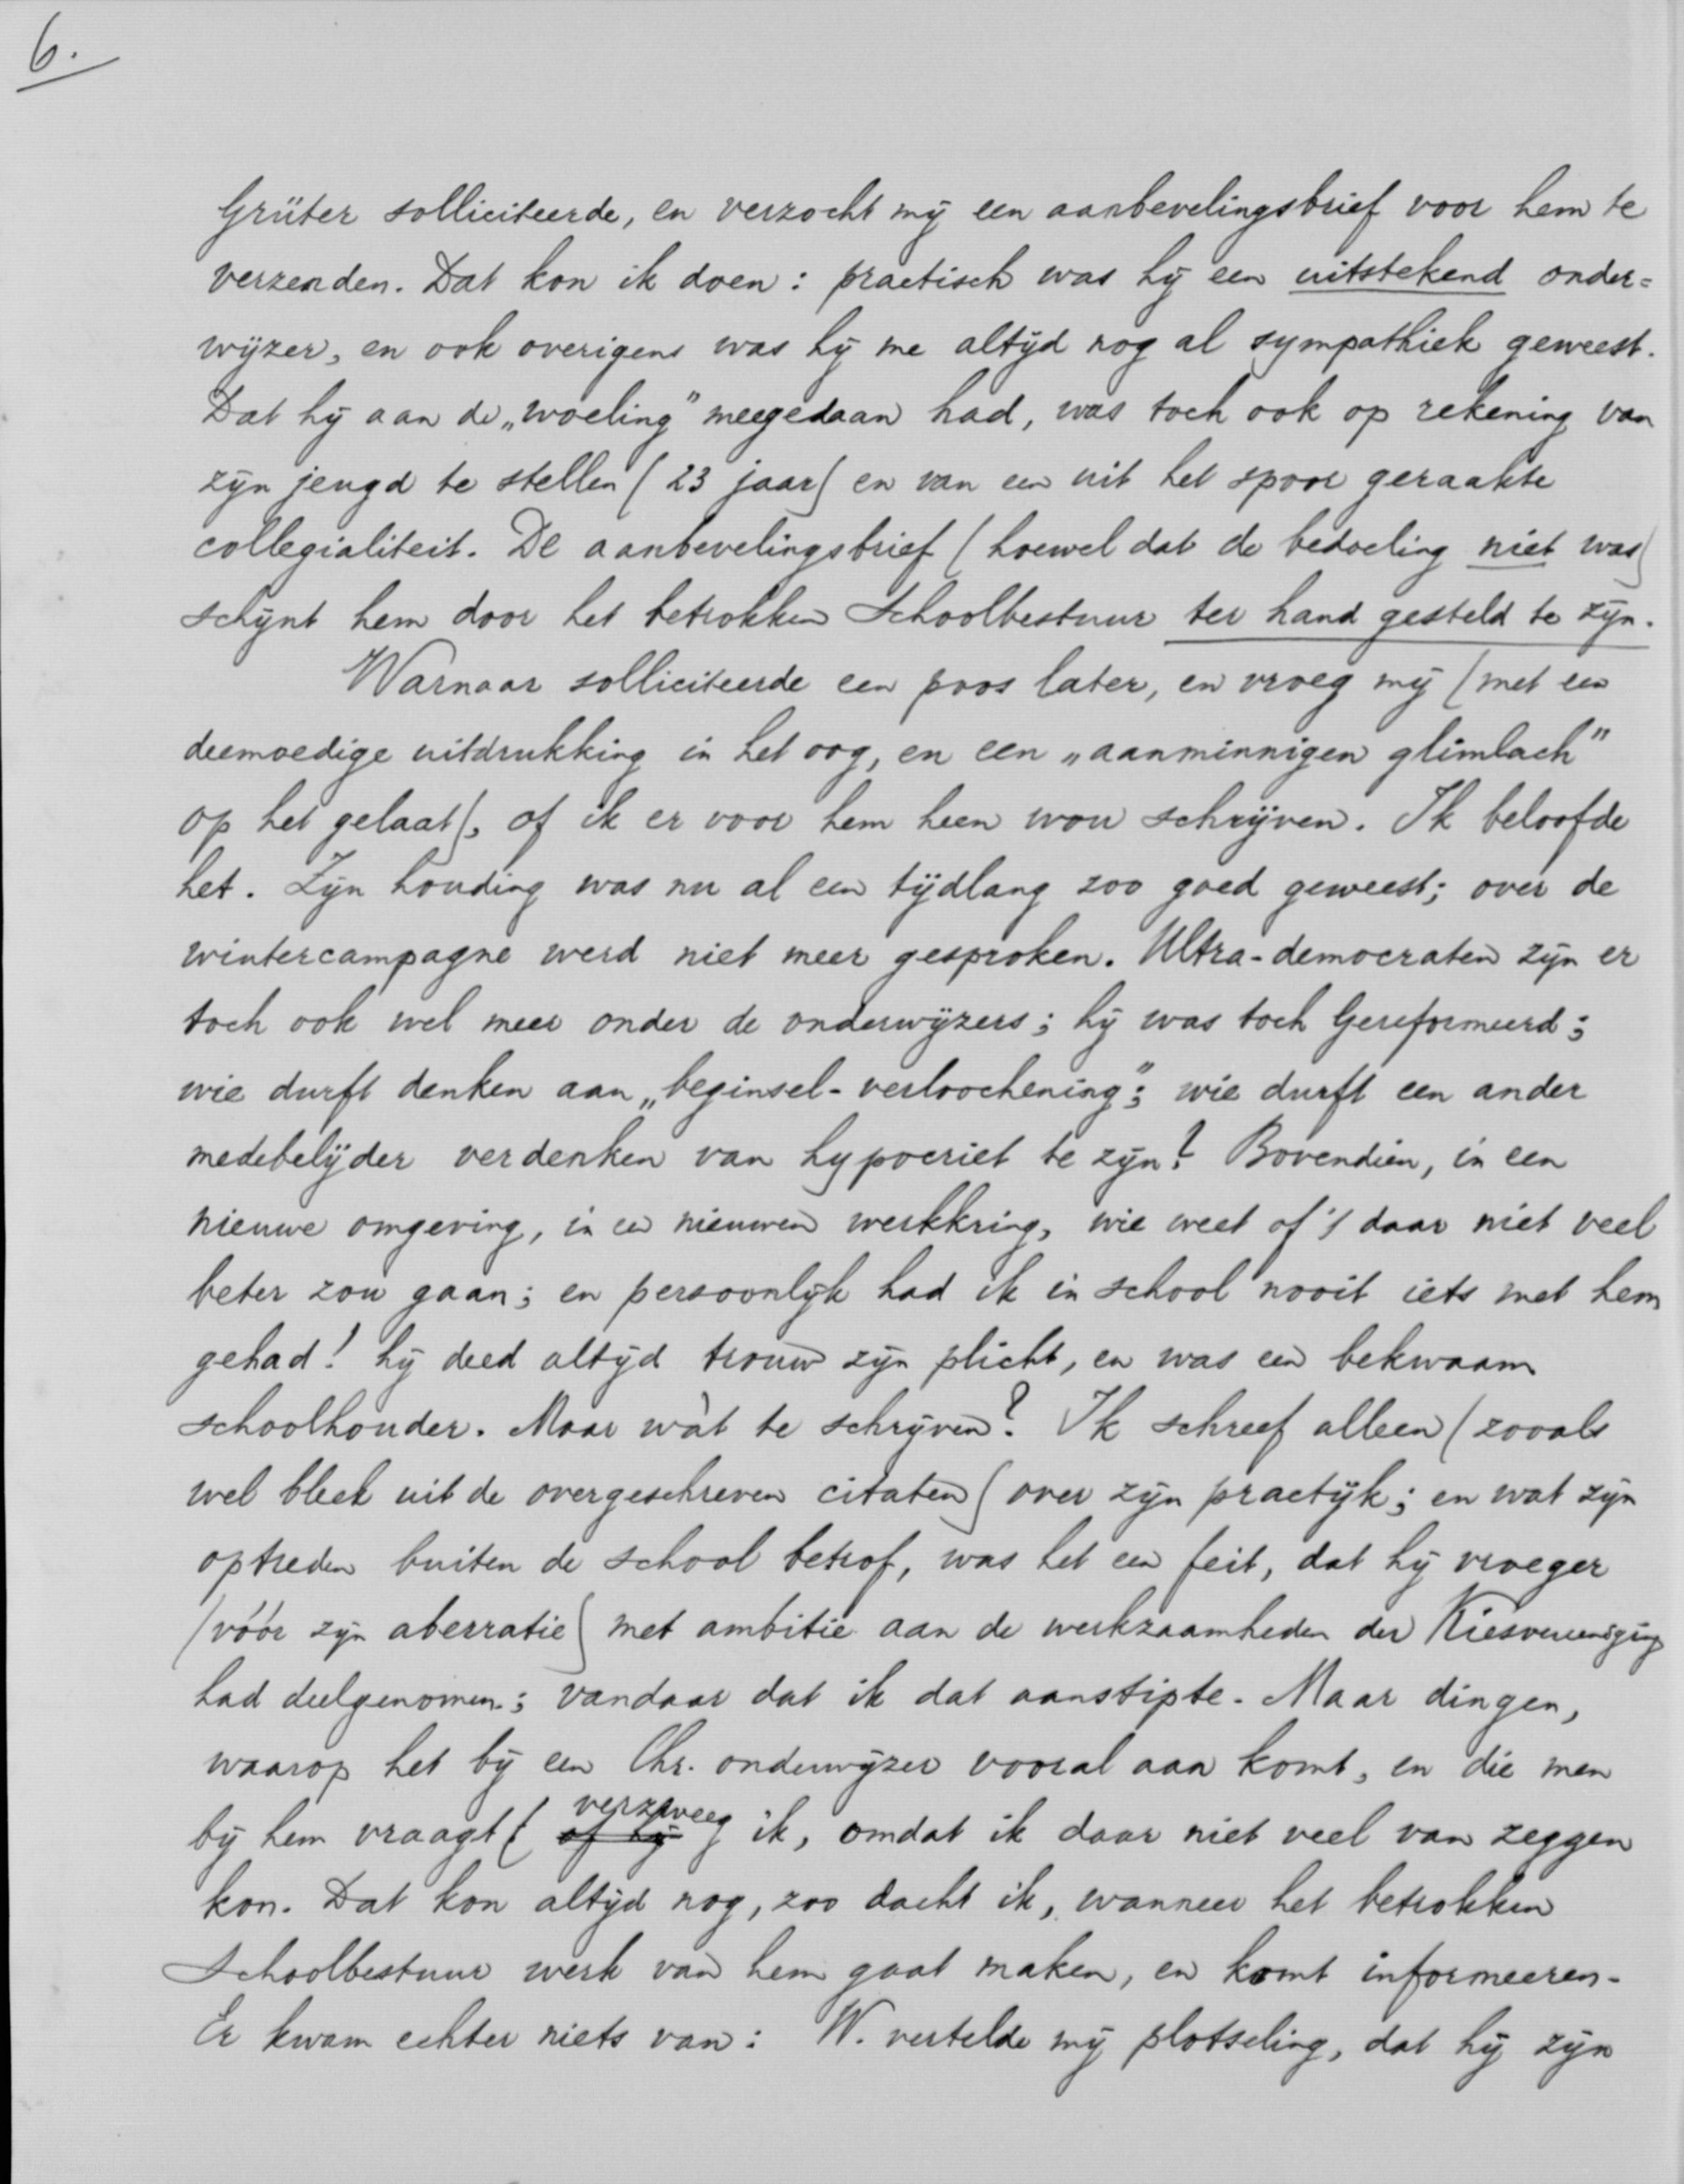 6.
Grüter solliciteerde, en verzocht mij een aanbevelingsbrief voor hem te
verzenden. Dat kon ik doen: practisch was hij een uitstekend onder=
wijzer, en ook overigens was hij me altijd nog al sympathiek geweest.
Dat hij aan de „woeling” meegedaan had, was toch ook op rekening van
zijn jeugd te stellen (23 jaar) en van een uit het spoor geraakte
collegialiteit. De aanbevelingsbrief (hoewel dat de bedoeling niet was)
schijnt hem door het betrokken Schoolbestuur ter hand gesteld te zijn.
Warnaar solliciteerde een poos later, en vroeg mij (met een
deemoedige uitdrukking in het oog, en een „aanminnigen glimlach”
op het gelaat), of ik er voor hem heen wou schrijven. Ik beloofde
het. Zijn houding was nu al een tijdlang zoo goed geweest; over de
wintercampagne werd niet meer gesproken. Ultra-democraten zijn er
toch ook wel meer onder de onderwijzers; hij was toch Gereformeerd;
wie durft denken aan „beginsel-verloochening”; wie durft een ander
medebelijder verdenken van hypocriet te zijn? Bovendien, in een
nieuwe omgeving, in een nieuwen werkkring, wie weet of 't daar niet veel
beter zou gaan; en persoonlijk had ik in school nooit iets met hem
gehad! hij deed altijd trouw zijn plicht, en was een bekwaam
schoolhouder. Maar wàt te schrijven? Ik schreef alleen (zooals
wel bleek uit de overgeschreven citaten) over zijn practijk; en wat zijn
optreden buiten de school betrof, was het een feit, dat hij vroeger
(vóór zijn aberratie) met ambitie aan de werkzaamheden der Kiesvereeniging
had deelgenomen; vandaar dat ik dat aanstipte. Maar dingen,
waarop het bij een Chr. onderwijzer vooral aan komt, en die men
bij hem vraagt (of hij verzweeg ik, omdat ik daar niet veel van zeggen
kon. Dat kon altijd nog, zoo dacht ik, wanneer het betrokken
Schoolbestuur werk van hem gaat maken, en komt informeeren.
Er kwam echter niets van: W. vertelde mij plotseling, dat hij zijn